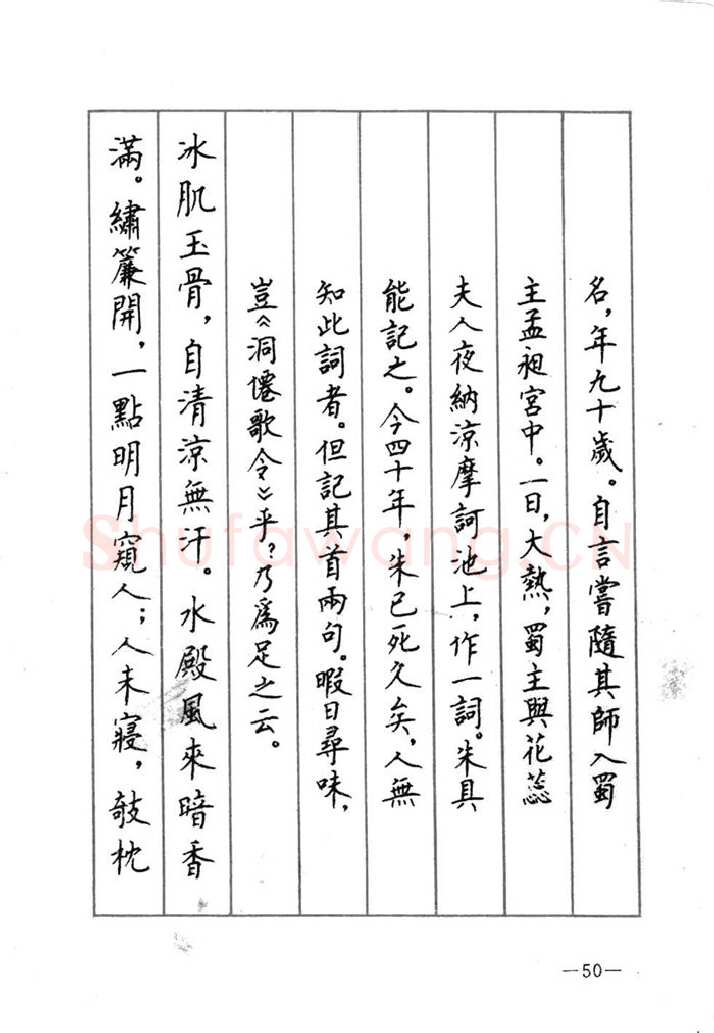 名，年九十歲。自言嘗隨其師入蜀
主孟昶宮中。一日，大熱，蜀主與花蕊
夫人夜納涼摩訶池上，作一詞。朱具
能記之。今四十年，朱已死久矣，人無
知此詞者。但記其首兩句。暇日尋味，
豈《洞僊歌令》乎？乃爲足之云。
冰肌玉骨，自清涼無汗。水殿風來暗香
滿。繡簾開，一點明月窺人；人未寢，攲枕
Shufawang.CN
—50—